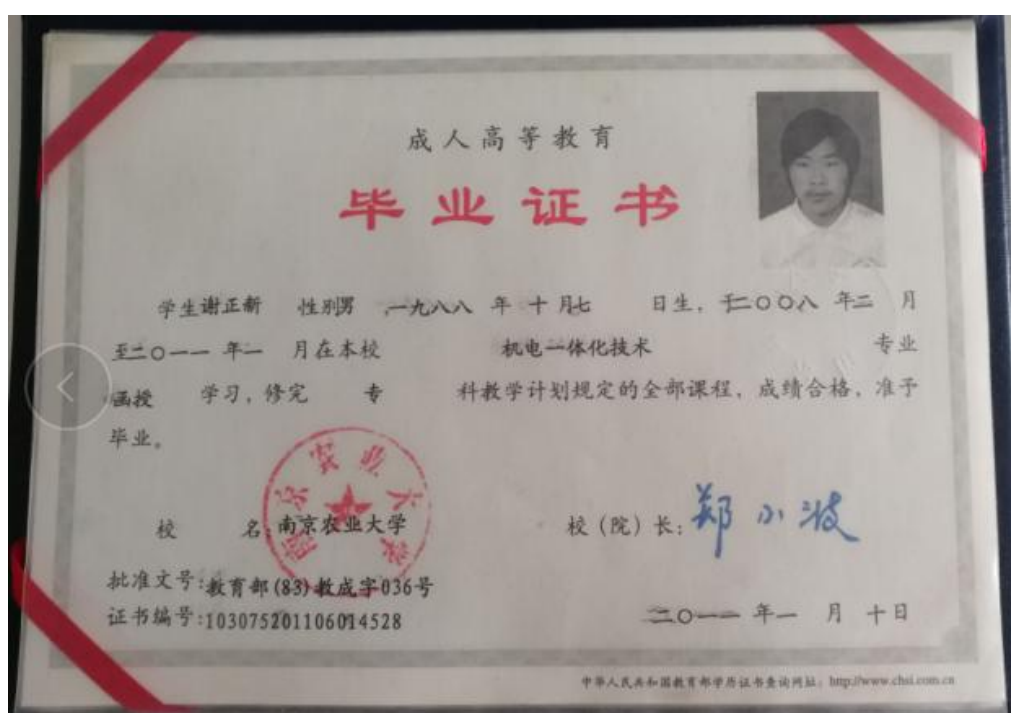 成人高等教育
毕业证书
学生谢正新 性别男 ,一九八八 年 十 月七 日生, 于二〇〇八 年二 月
至二〇一一 年一 月在本校 机电一体化技术 专业
函授 学习, 修完 专 科教学计划规定的全部课程, 成绩合格, 准予
毕业。
校 名:南京农业大学 校(院)长: 郑小波
批准文号:教育部(83)教成字036号
证书编号:103075201106014528 二〇一一 年一 月 十日
中华人民共和国教育部学历证书查询网址: http://www.chsi.com.cn
南京农业大学